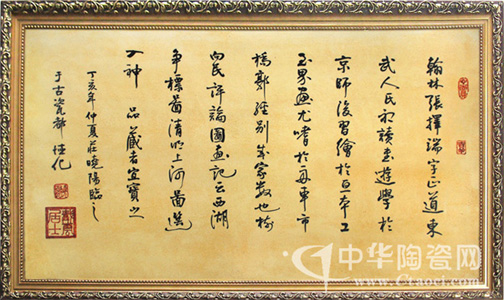 翰林張擇端字正道東
武人氏初讀書遊學於
京師後習繪於本工
界畫尤嗜於舟車市
橋郭經別成家數也按
向氏評論圖畫記云西湖
爭標圖清明上河圖選
入神品藏者宜寶之
丁亥年仲夏莊曉陽臨之
于古瓷都
中华陶瓷网
www.Ctaoci.com